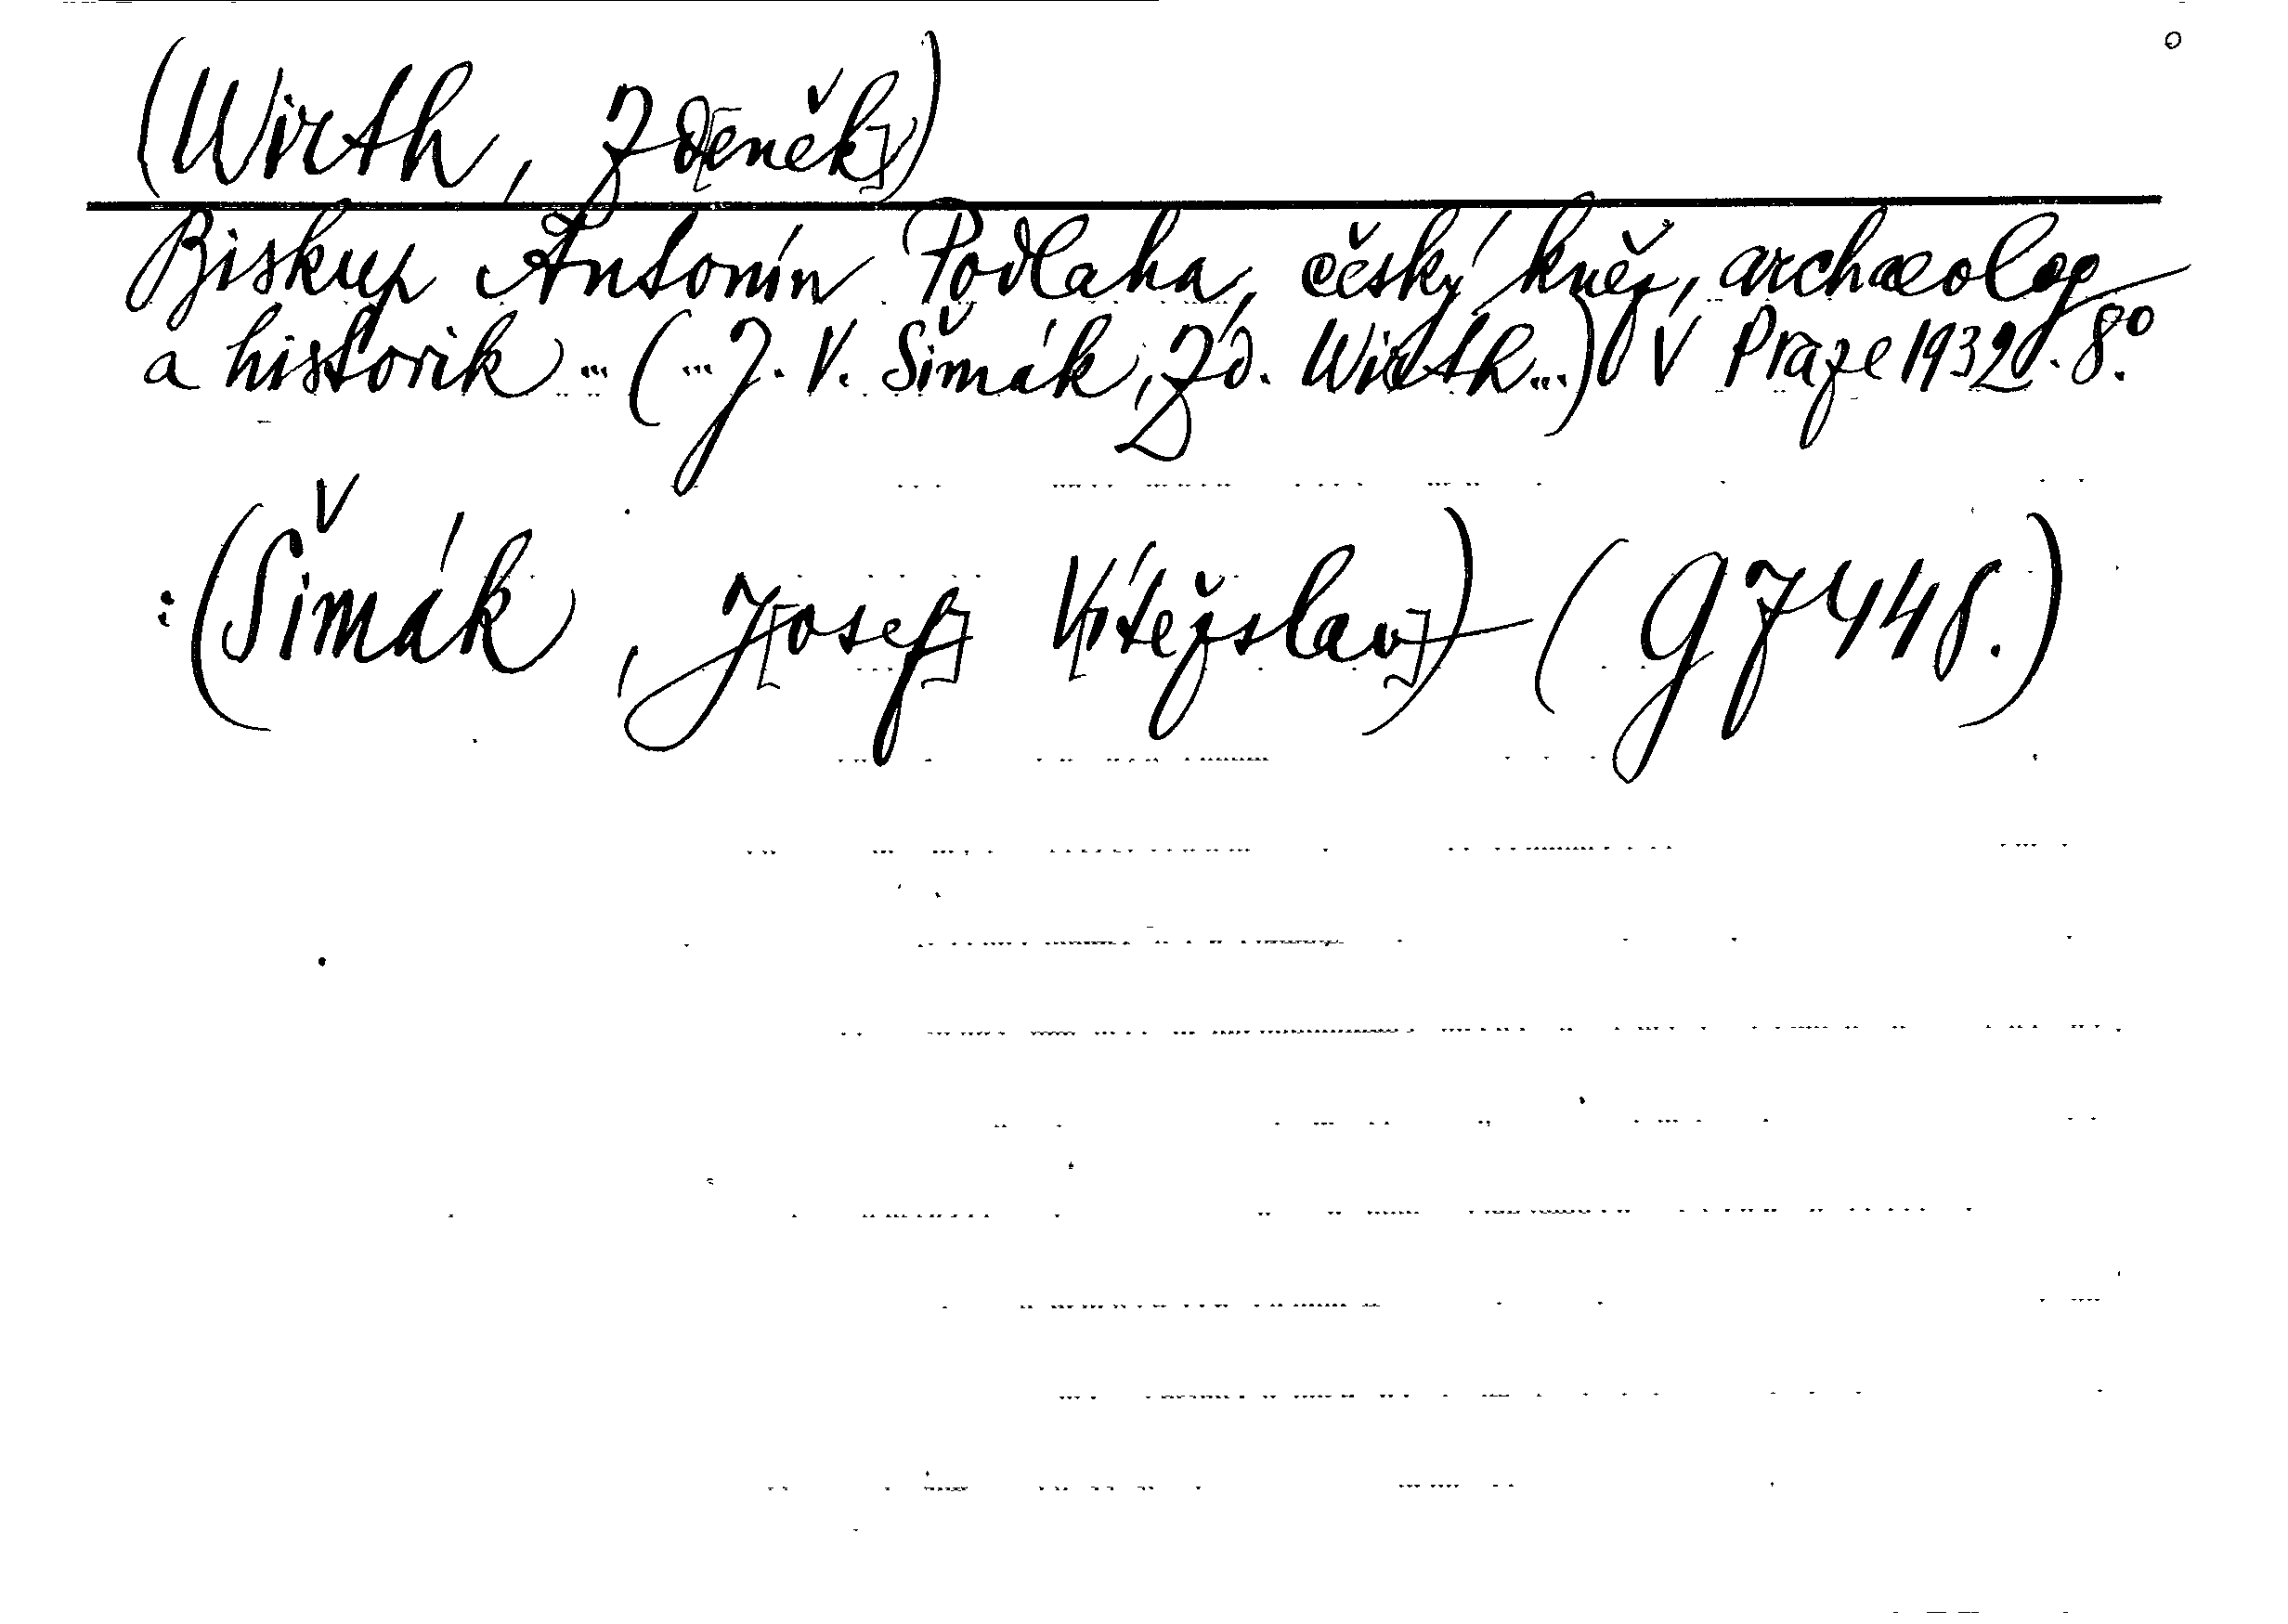 (Wirth, Zd[eněk])
Biskup Antonín Podlaha, český kněz, archaeolog
a historik ... (... J. V. Šimák, Zd. Wirth...) V Praze 1932. 8°.
: (Šimák, J[osef] V[ítězslav]) (